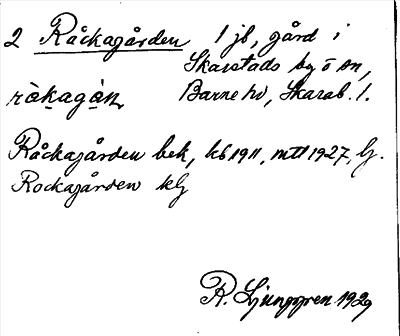 2 Råckagården 1 jb, gård i
Skarstads by o sn,
ràkagàn Barne hd, Skarab. l.
Råckagården bek, kb 1911, mtl 1927, lj.
Rockagården klj
R. Ljunggren 1929